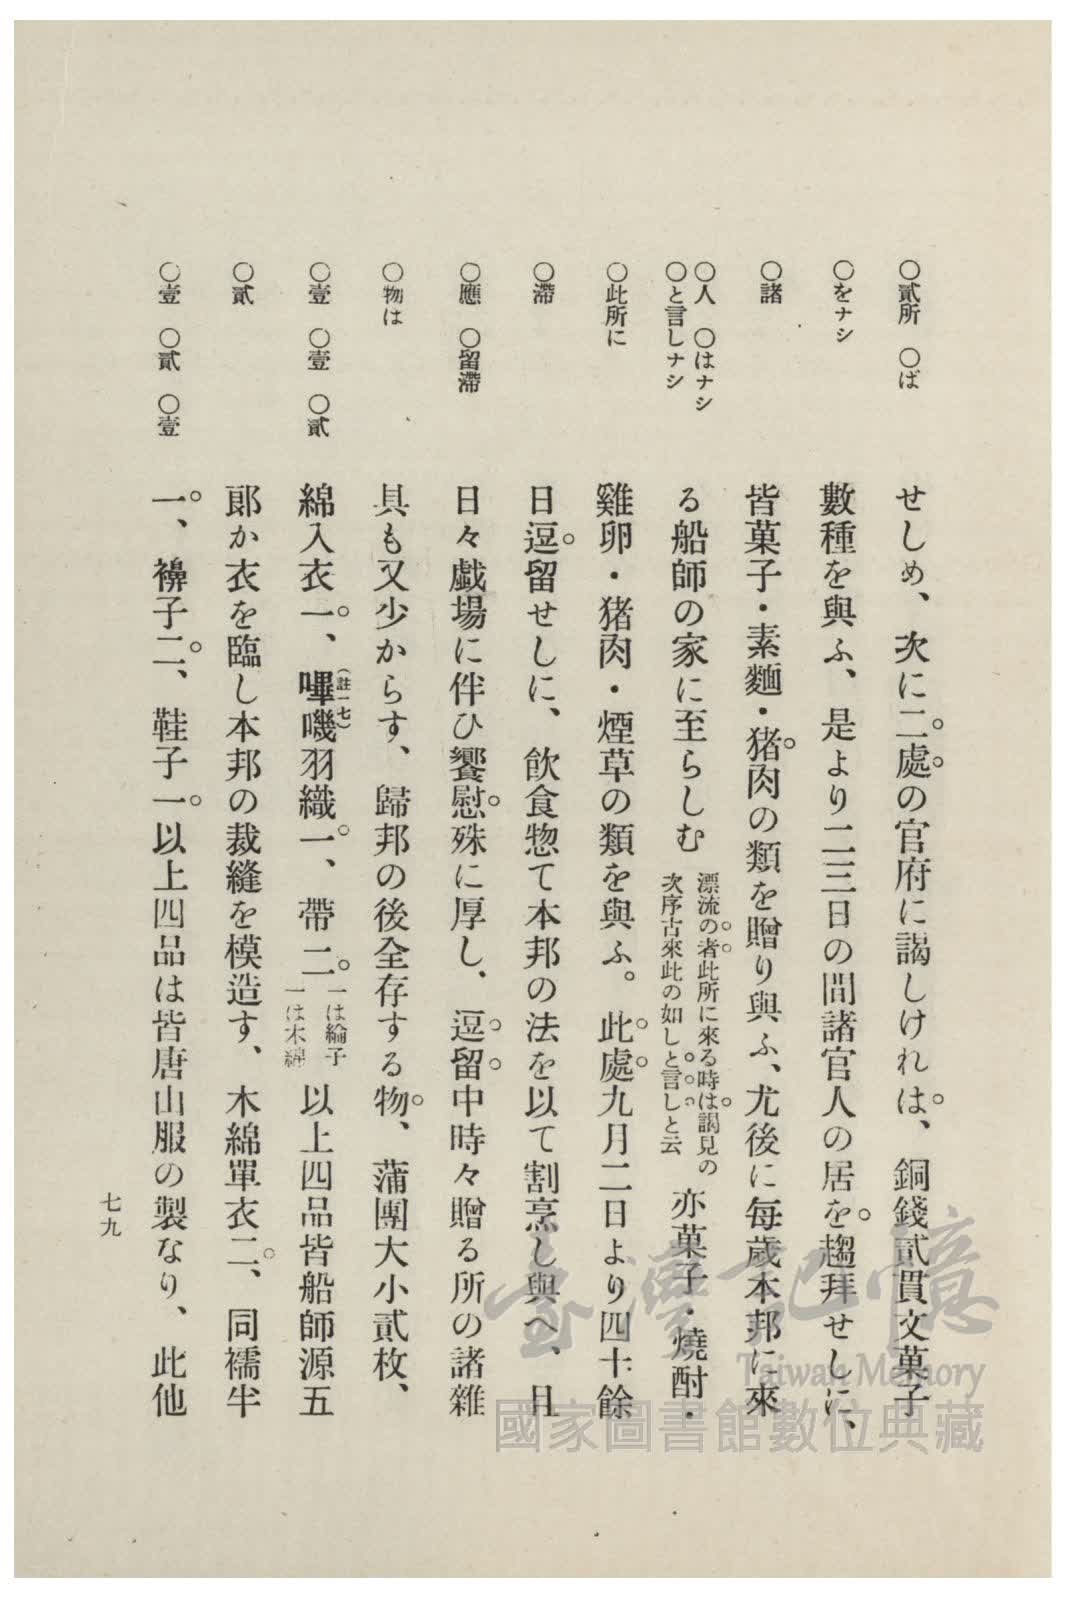 〇貳所　〇ば
せしめ、次に二處の官府に謁しけれは、銅錢貳貫文菓子
〇をナシ
數種を與ふ、是より二三日の間諸官人の居を趨拜せしに、
〇諸
皆菓子・素麵・猪肉の類を贈り與ふ、尤後に每歲本邦に來
〇人　〇はナシ
〇と言しナシ
る船師の家に至らしむ
漂流の者此所に來る時は謁見の
次序古來此の如しと言しと云
亦菓子・燒酎・
〇此所に
雞卵・猪肉・煙草の類を與ふ。此處九月二日より四十餘
〇滯
日逗留せしに、飲食惣て本邦の法を以て割烹し與へ、且
〇應　〇留滯
日々戲場に伴ひ饗慰殊に厚し、逗留中時々贈る所の諸雜
〇物は
具も又少からす、歸邦の後全存する物、蒲團大小貳枚、
〇壹　〇壹　〇貳
綿入衣一、嗶嘰羽織一、帶二
(註一七)
一は綸子
一は木綿
以上四品皆船師源五
〇貳
郞か衣を臨し本邦の裁縫を模造す、木綿單衣二、同襦半
〇壹　〇貳　〇壹
一、褲子二、鞋子一以上四品は皆唐山服の製なり、此他
七九
臺灣記憶
Taiwan Memory
國家圖書館數位典藏